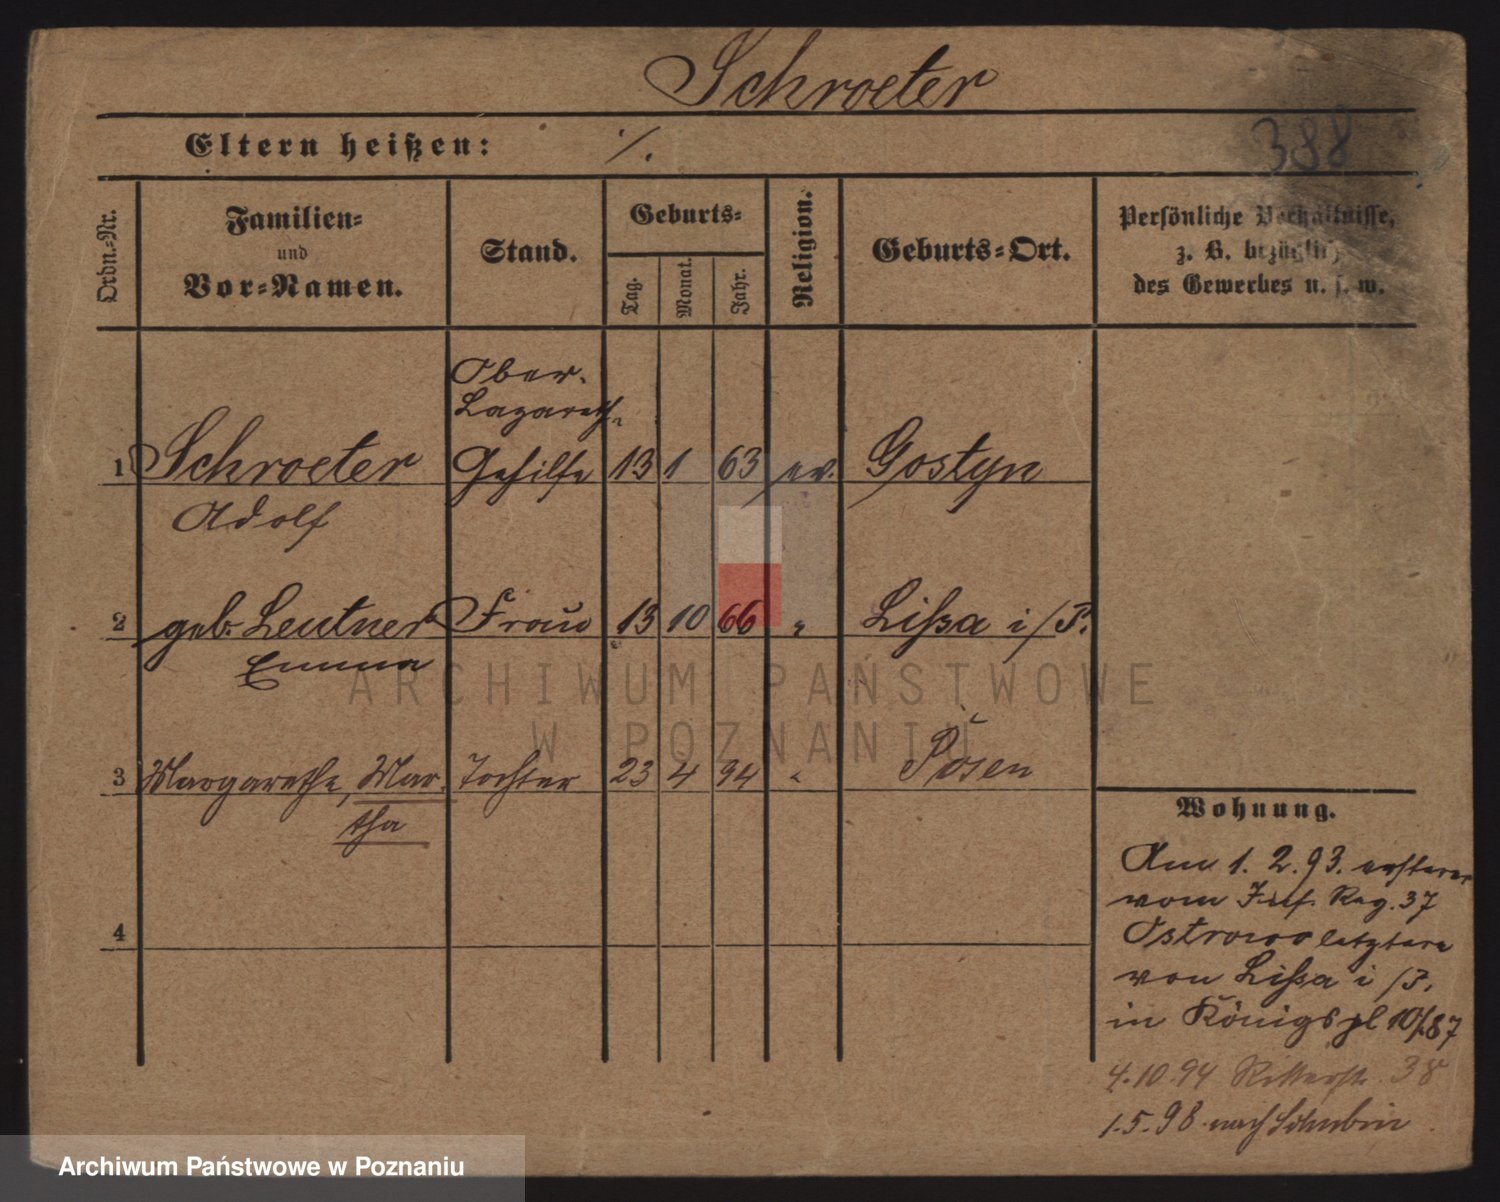 Schroeter
388
Eltern heißen: ./.
Ordn.-Nr.
Familien-
und
Vor-Namen.
Stand.
Geburts-
Tag.
Monat.
Jahr.
Religion.
Geburts-Ort.
Persönliche Verhältnisse,
z. B. bezüglich
des Gewerbes u. s. w.
Ober-
Lazareth-
1 Schroeter Gehilfe 13 1 63 ev. Gostyn
Adolf
2 geb. Leutner Frau 13 10 66 " Lißa i/P.
Emma
3 Margarethe, Mar- Tochter 23 4 94 " Posen
tha
4
Wohnung.
Am 1. 2. 93. ersterer
vom Inf. Reg. 37
Ostrowo letztere
von Lißa i/P.
in Königspl 10/87
4.10.94 Ritterstr. 38
1.5.98 nach Schubin
ARCHIWUM PAŃSTWOWE
W POZNANIU
Archiwum Państwowe w Poznaniu